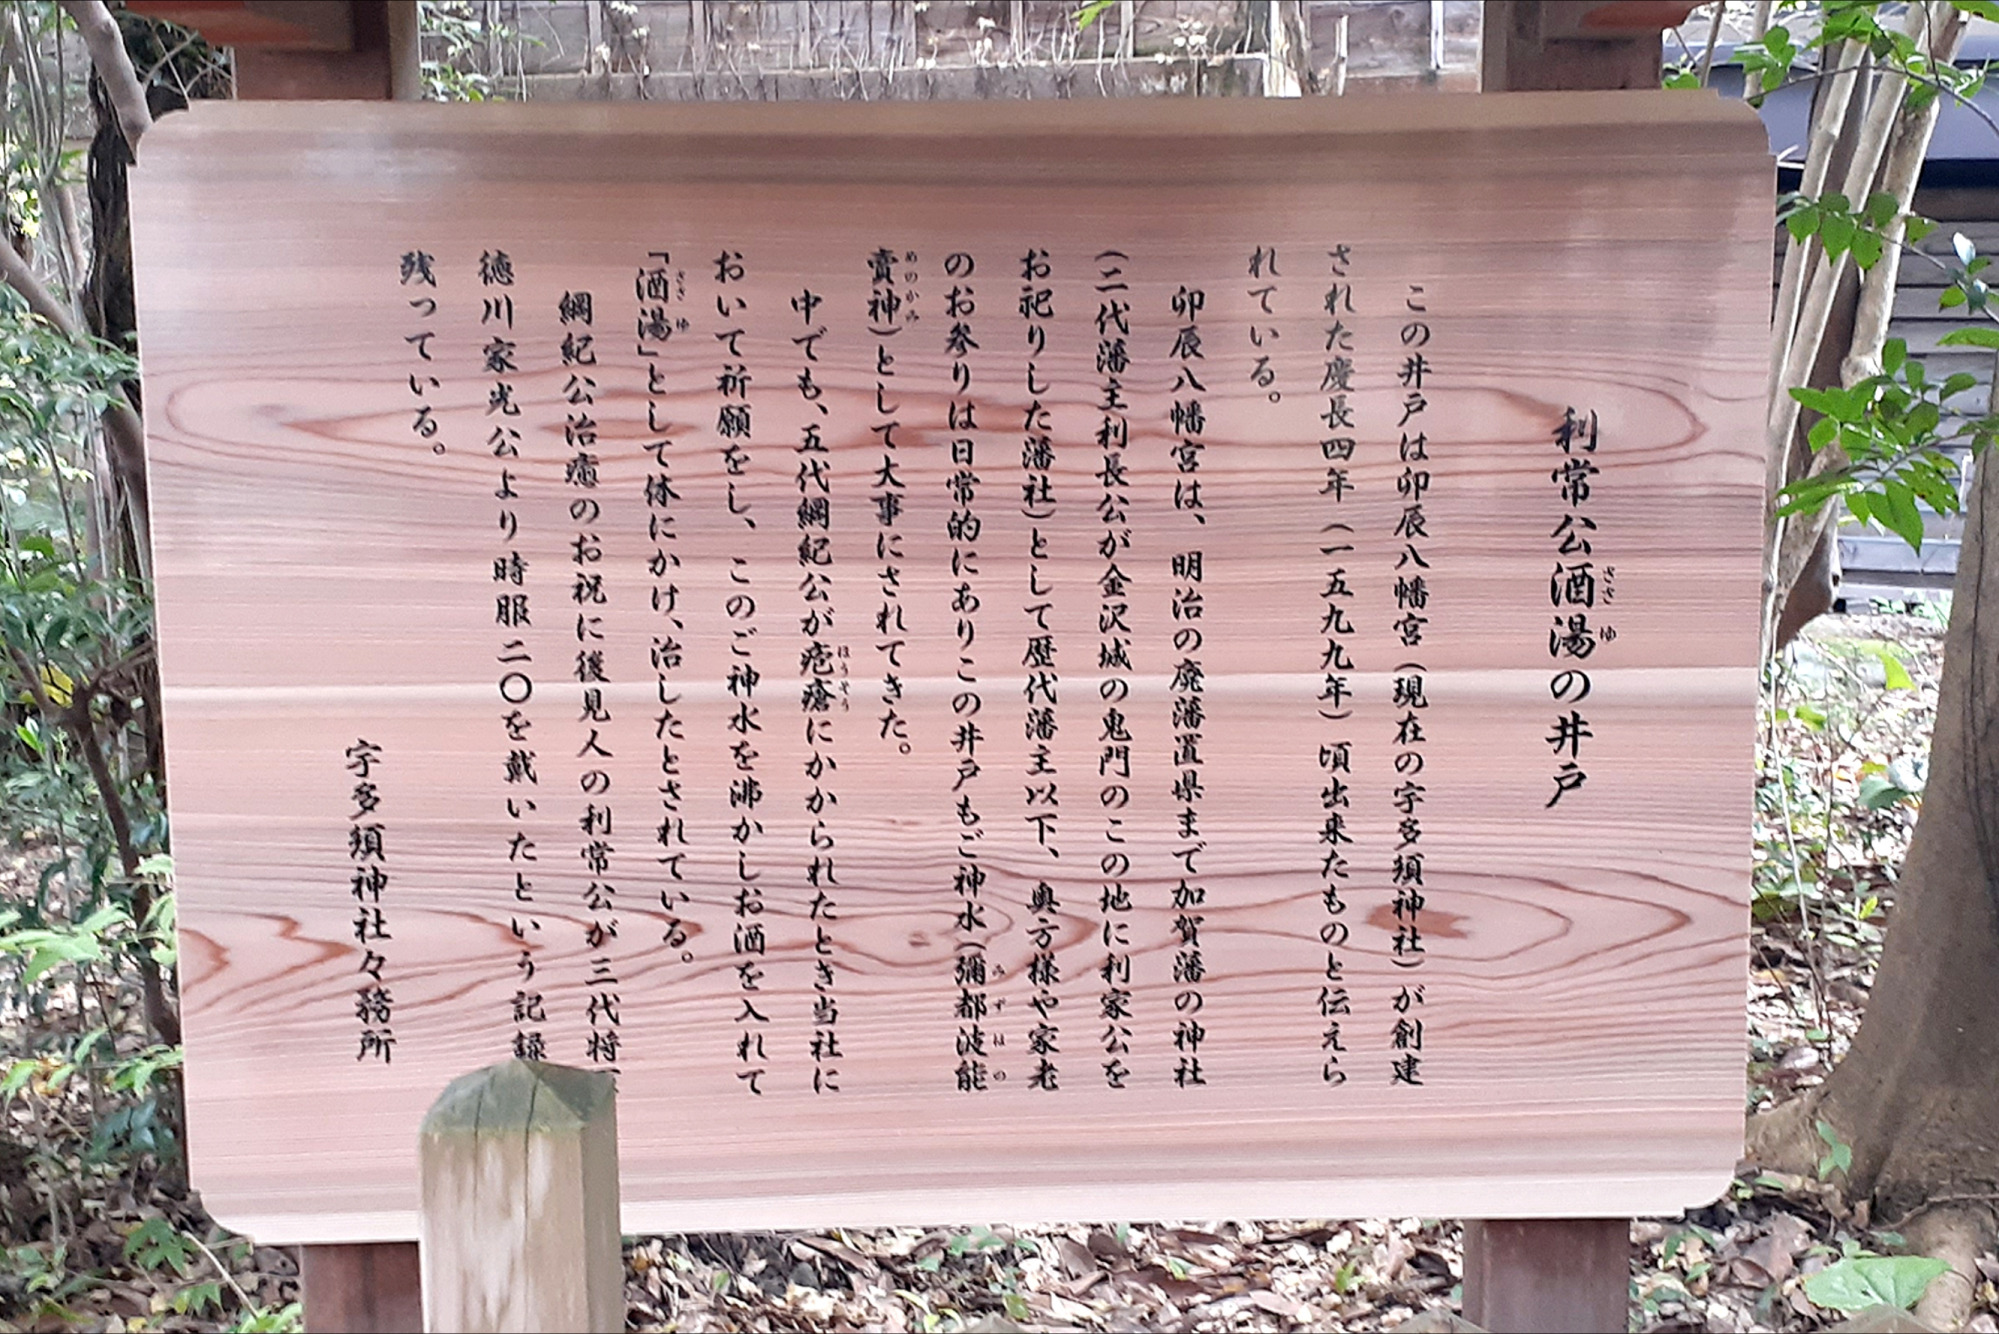 利常公酒湯の井戸
ささ ゆ
この井戸は卯辰八幡宮(現在の宇多須神社)が創建
された慶長四年(一五九九年)頃出来たものと伝えら
れている。
卯辰八幡宮は、明治の廃藩置県まで加賀藩の神社
(二代藩主利長公が金沢城の鬼門のこの地に利家公を
お祀りした藩社)として歴代藩主以下、奥方様や家老
のお参りは日常的にありこの井戸もご神水(彌都波能
みずはの
賣神)として大事にされてきた。
めのかみ
中でも、五代綱紀公が疱瘡にかかられたとき当社に
ほうそう
おいて祈願をし、このご神水を沸かしお酒を入れて
「酒湯」として体にかけ、治したとされている。
ささ ゆ
綱紀公治癒のお祝に後見人の利常公が三代将
徳川家光公より時服二〇を戴いたという記録
残っている。
宇多須神社々務所